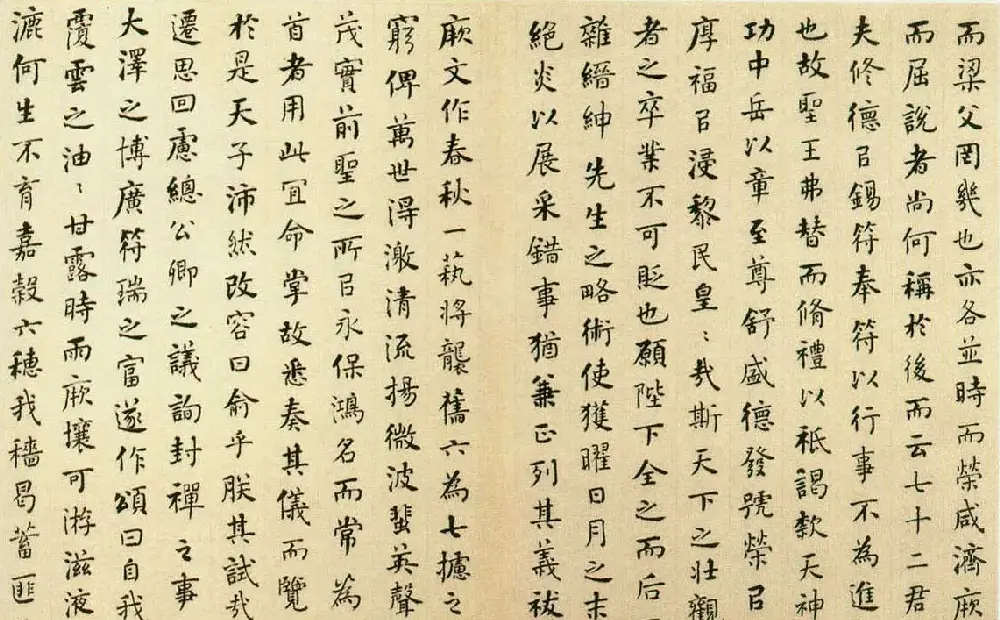 而梁父罔幾也亦各並時而榮咸濟厥
而屈說者尚何稱於後而云七十二君
夫修德㠯錫符奉符以行事不為進
也故聖王弗替而脩禮以祇謁欵天神
功中岳以章至尊舒盛德發號榮㠯
厚福㠯浸黎民皇〻哉斯天下之壯觀
者之卒業不可貶也願陛下全之而后
雜縉紳先生之略術使獲曜日月之末
絕炎以展采錯事猶兼正列其義祓
厥文作春秋一藝將襲舊六為七攄之
窮俾萬世得激清流揚微波蜚英聲
茂實前聖之所㠯永保鴻名而常為
首者用此宜命掌故悉奏其儀而覽
於是天子沛然改容曰俞乎朕其試哉
遷思回慮總公卿之議詢封禪之事
大澤之博廣符瑞之富遂作頌曰自我
覆雲之油〻甘露時雨厥壤可游滋液
漉何生不育嘉穀六穗我穡曷蓄匪